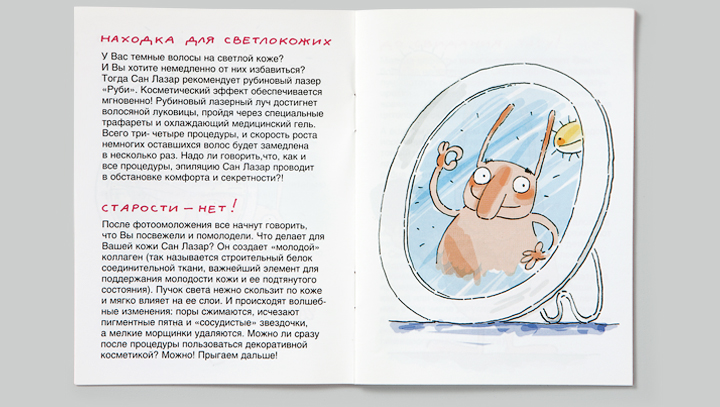 НАХОДКА ДЛЯ СВЕТЛОКОЖИХ
У Вас темные волосы на светлой коже?
И Вы хотите немедленно от них избавиться?
Тогда Сан Лазар рекомендует рубиновый лазер
«Руби». Косметический эффект обеспечивается
мгновенно! Рубиновый лазерный луч достигнет
волосяной луковицы, пройдя через специальные
трафареты и охлаждающий медицинский гель.
Всего три- четыре процедуры, и скорость роста
немногих оставшихся волос будет замедлена
в несколько раз. Надо ли говорить,что, как и
все процедуры, эпиляцию Сан Лазар проводит
в обстановке комфорта и секретности?!
СТАРОСТИ — НЕТ!
После фотоомоложения все начнут говорить,
что Вы посвежели и помолодели. Что делает для
Вашей кожи Сан Лазар? Он создает «молодой»
коллаген (так называется строительный белок
соединительной ткани, важнейший элемент для
поддержания молодости кожи и ее подтянутого
состояния). Пучок света нежно скользит по коже
и мягко влияет на ее слои. И происходят волшеб-
ные изменения: поры сжимаются, исчезают
пигментные пятна и «сосудистые» звездочки,
а мелкие морщинки удаляются. Можно ли сразу
после процедуры пользоваться декоративной
косметикой? Можно! Прыгаем дальше!